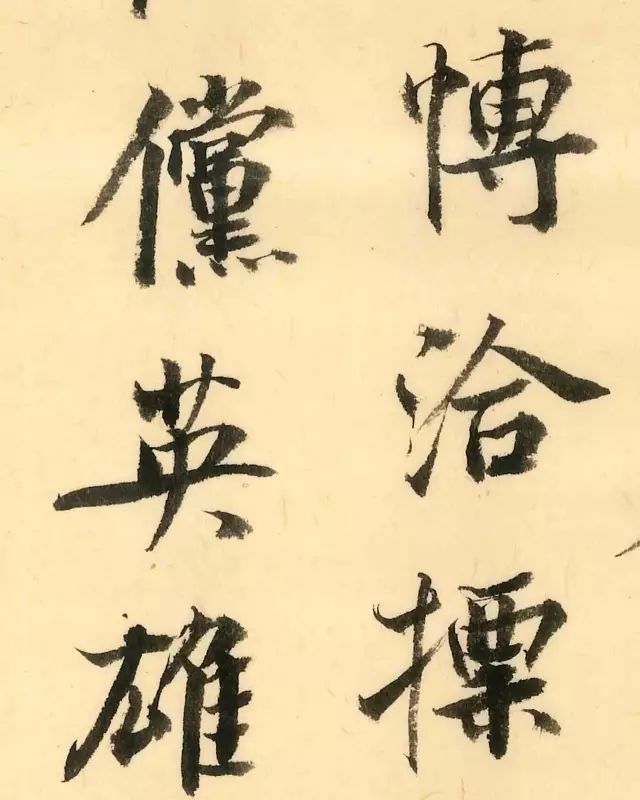 博洽摽
儻英雄